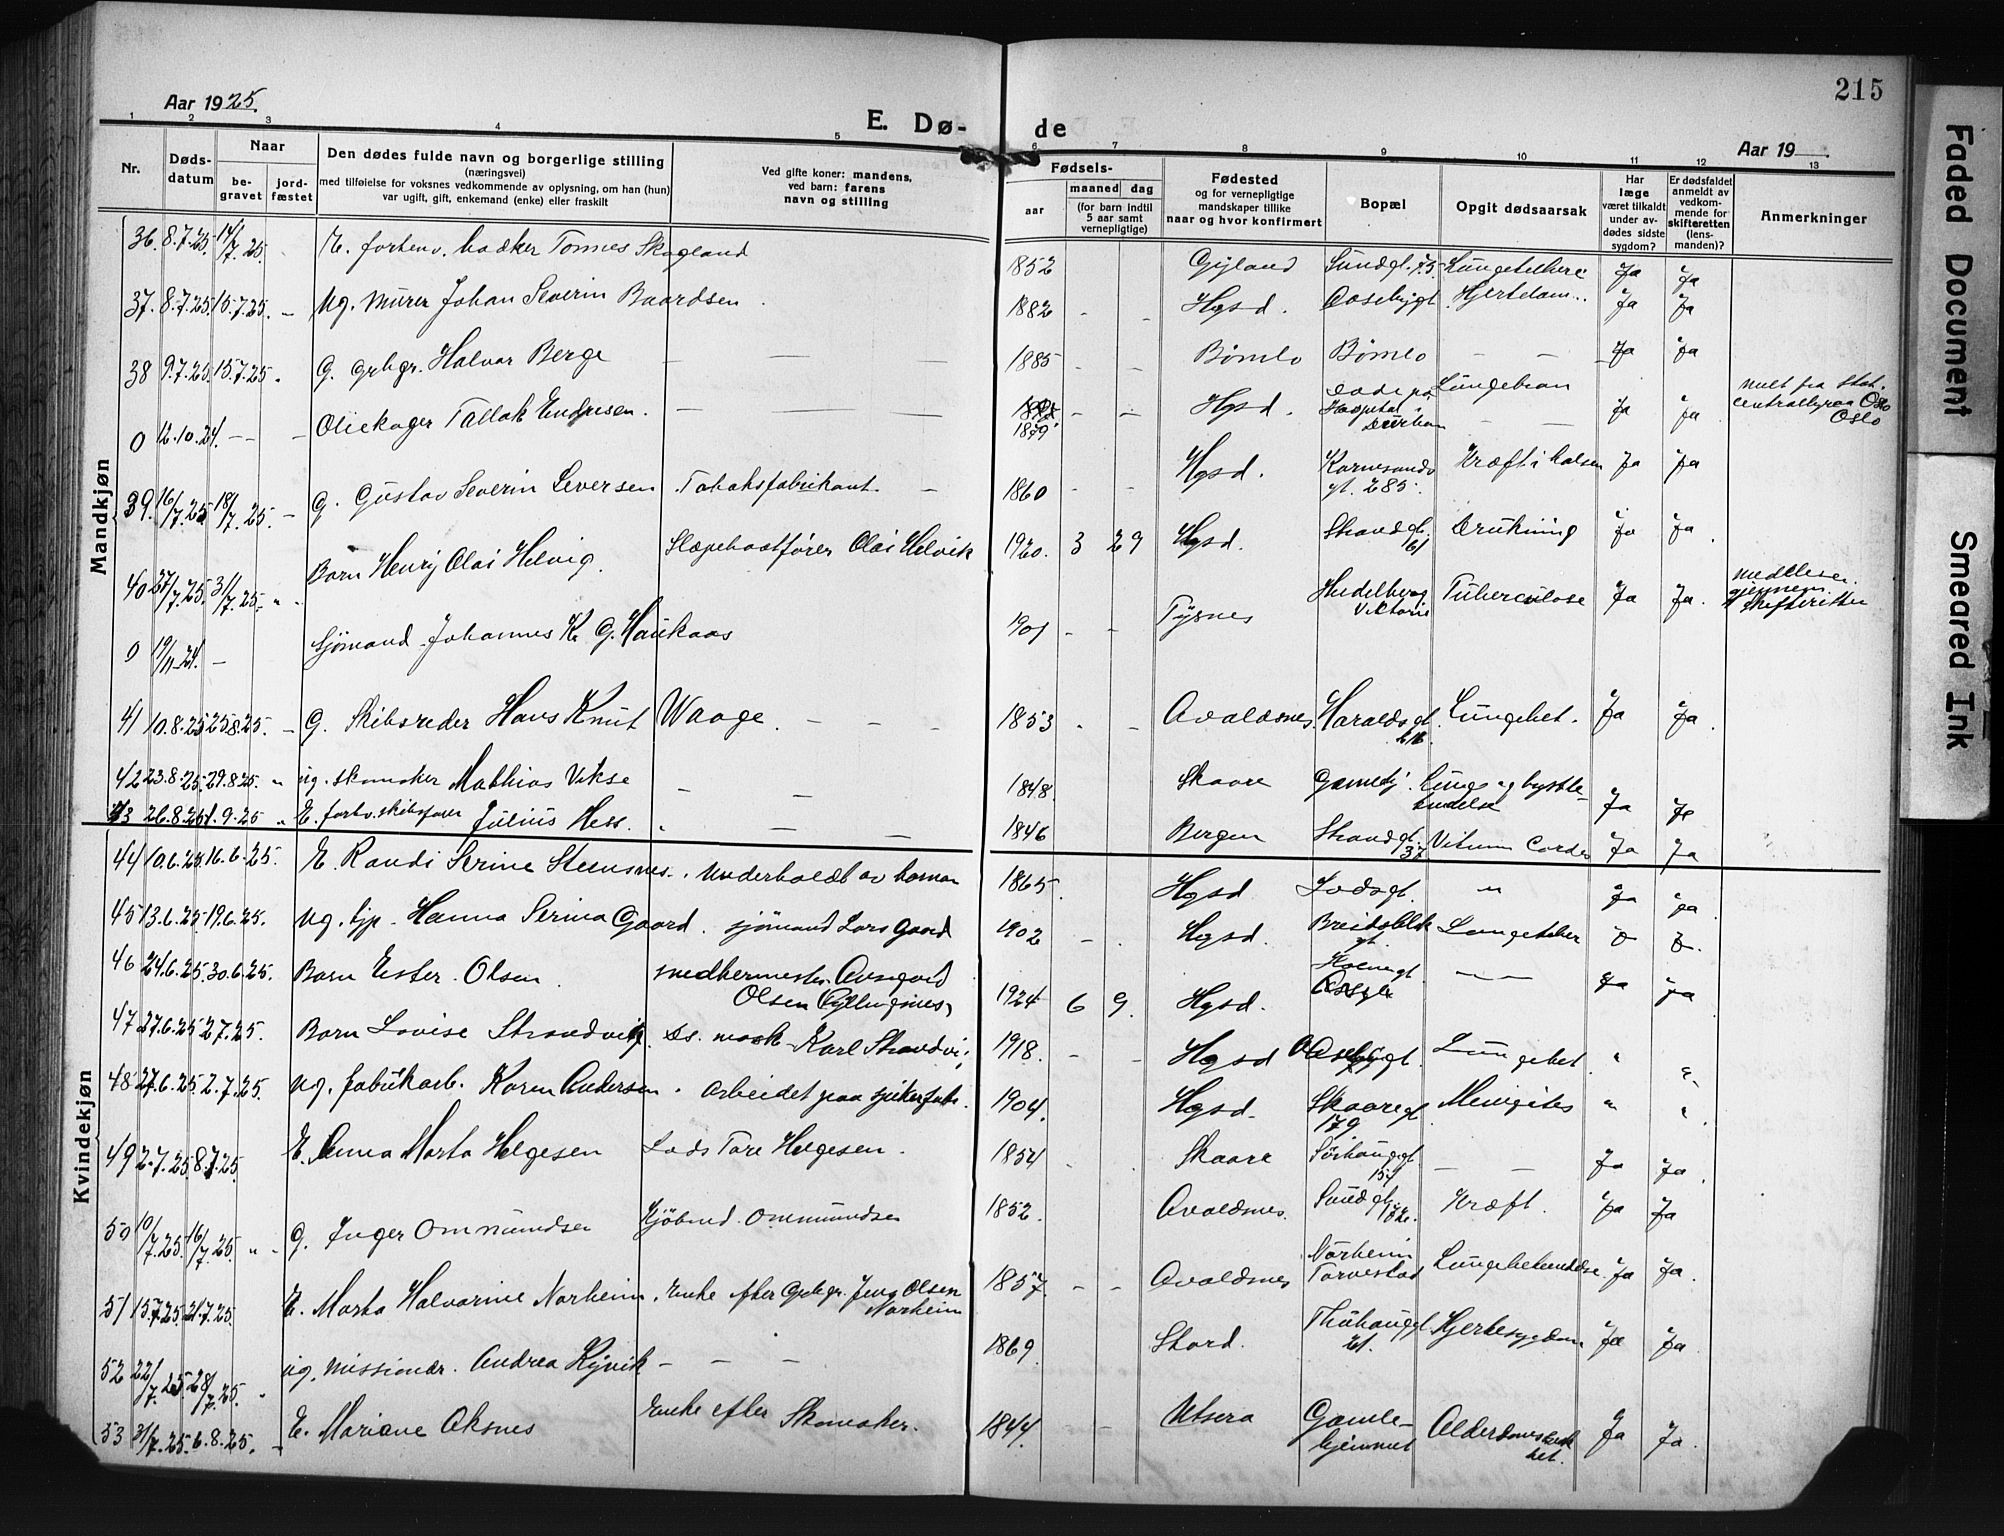 215
Aar 1925.
E. Dø-
de
Aar 19
1 2 3 4 5 6 7 8 9 10 11 12 13
Nr.
Døds-
datum
Naar
be-
gravet
jord-
fæstet
Den dødes fulde navn og borgerlige stilling
(næringsvei)
med tilføielse for voksnes vedkommende av oplysning, om han (hun)
var ugift, gift, enkemand (enke) eller fraskilt
Ved gifte koner: mandens,
ved barn: farens
navn og stilling
Fødsels-
aar
maaned dag
(for barn indtil
5 aar samt
vernepligtige)
Fødested
og for vernepligtige
mandskaper tillike
naar og hvor konfirmert
Bopæl
Opgit dødsaarsak
Har
læge
været tilkaldt
under av-
dødes sidste
sygdom?
Er dødsfaldet
anmeldt av
vedkom-
mende for
skifteretten
(lens-
manden)?
Anmerkninger
Mandkjøn
36. 8.7.25. 14/7.25. E. forhenv. baaker Tonnes Skogland 1852 Gyland Sundgt. 75 Lungetuberc Ja Ja
37. 8.7.25 15.7.25. - ug. murer Johan Severin Baardsen 1882 - - Hgsd. Aasebygt Hjertelam.. Ja Ja
38 9.7.25. 15.7.25 " G. grbgr. Halvar Berge — — 1885 - - Bømlo Bømlo - - Ja Ja
0 12.10.24. - - Oliekoger Tallak Endresen. — — 1879 - - Hgsd. døde paa Hospital i Durban Ja Ja melt fra Stat. centralbyraa Oslo
Oslo
39. 16/7.25 18/7.25. - G. Gustav Severin Seversen Tobaksfabrikant. - 1860 - - Hgsd. Karmsunds gt. 285. Kræft i halsen Ja Ja
40 27/7.25. 31/7.25. " Barn Henry Olai Helvig. Slæpebaatfører Olai Helvik 1920. 3 29 Hgsd. Strandgt. 61 Drukning Ja Ja
0 19/11-24. - Sjømand Johannes K. G. Haukaas 1901 - - Tysnes Heidelberg Viktoria Tuberculose Ja Ja. meddelese. gjennem skifteretten
41 10.8.25 25.8.25. - G. Skibsreder Hans Knut Waage. - - 1853 - - Avaldsnes Haraldsgt. Lungebet. Ja Ja
42 23.8.25. 29.8.25. " ug. skomaker Mathias Vikse - - 1848. Skaare Gamlehj. Ja Ja
43 26.8.25 1.9.25 " E. forhv. skibsfører Julius Hess. " - - 1846 Bergen Strandgt. 37 Vitium Cordis Ja Ja
Kvindekjøn
44 10.6.25 16.6.25. E. Randi Serine Steensnes. Underholdt av barna 1865. Hgsd Lodsgt. " Ja Ja
45 13.6.25 19.6.25. ug. tjp. Hanna Serina Gaard. sjømand Lars Gaard 1902 - . Hgsd. Breidablik gt. Lungetuber
46 24.6.25. 30.6.25. Barn Ester Olsen. smedhermester Olsen 1924 6 9. Hgsd. — — Ja Ja
47 27.6.25 2.7.25. Barn Lovise Strandvig. Ds. mask. Karl Strandvi 1918. - - Hgsd Aasebygt. Lungebet. " "
48 27.6.25 2.7.25. ug. fabrikarb. Karen Andersen. Arbeidet paa spikerfabr. 1904. Hgsd. Skaaregt 179 Meningites " "
49 2.7.25 8.7.25. E. Anna Marta Helgesen Lods Tore Helgesen. 1854 . . Skaare Sørhauggt 154 — — Ja Ja
50 10/7.25. 16/7.25 " " G. Inger Ommundsen Kjøbmd. Ommundsen 1852. Avaldsnes. Sundgt. 132. Kræft. Ja Ja
51 15.7.25. 21.7.25. E. Marta Halvarine Norheim. Enke efter Grbgr. Jens Olsen Norheim 1857. - - Avaldsnes Norheim Torvestad Lungebetændelse. Ja Ja.
52 22/7.25 28/7.25. " ug. missionær. Andrea Kyvik - - - 1869. Stord. Thuhauggt 21. Hjertesygdom Ja Ja.
53 31/7.25. 6.8.25. - E. Mariane Aksnes Enke efter Skomaker. 1844. - - Utsira Gamle- hjemmet Alderdomssvak het. Ja Ja.
Faded Document
Smeared Ink